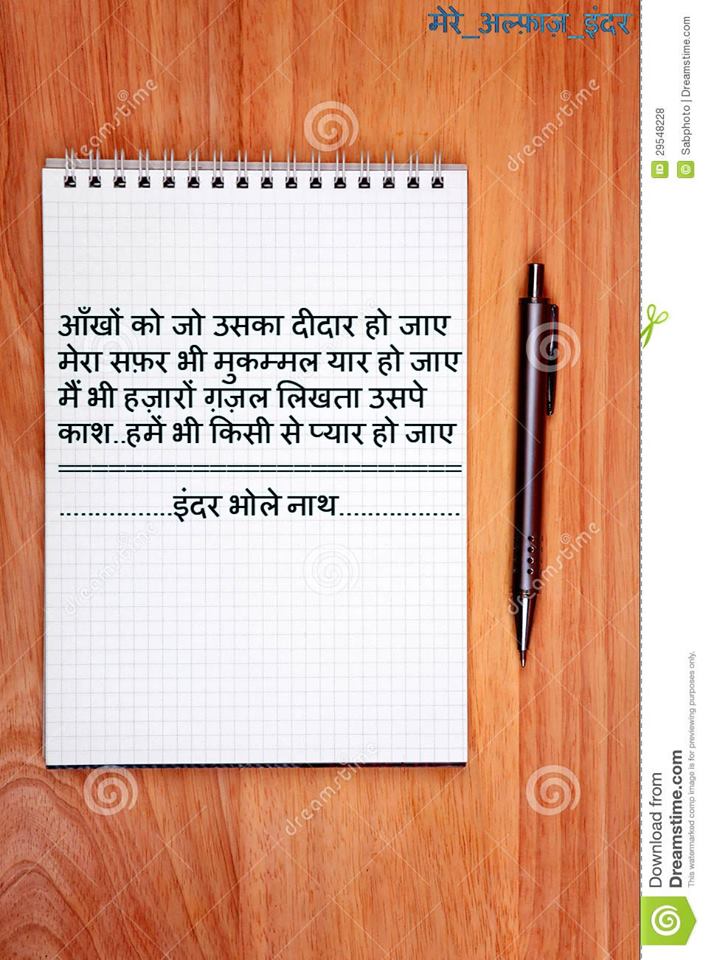 मेरे_अल्फ़ाज़_इंदर
आँखों को जो उसका दीदार हो जाए
मेरा सफ़र भी मुकम्मल यार हो जाए
मैं भी हज़ारों ग़ज़ल लिखता उसपे
काश..हमें भी किसी से प्यार हो जाए
==============================
................इंदर भोले नाथ.................
dreamstime
dreamstime
dreamstime
dreamstime
dreamstime
ID 29548228
© Sabphoto | Dreamstime.com
Download from
Dreamstime.com
This watermarked comp image is for previewing purposes only.